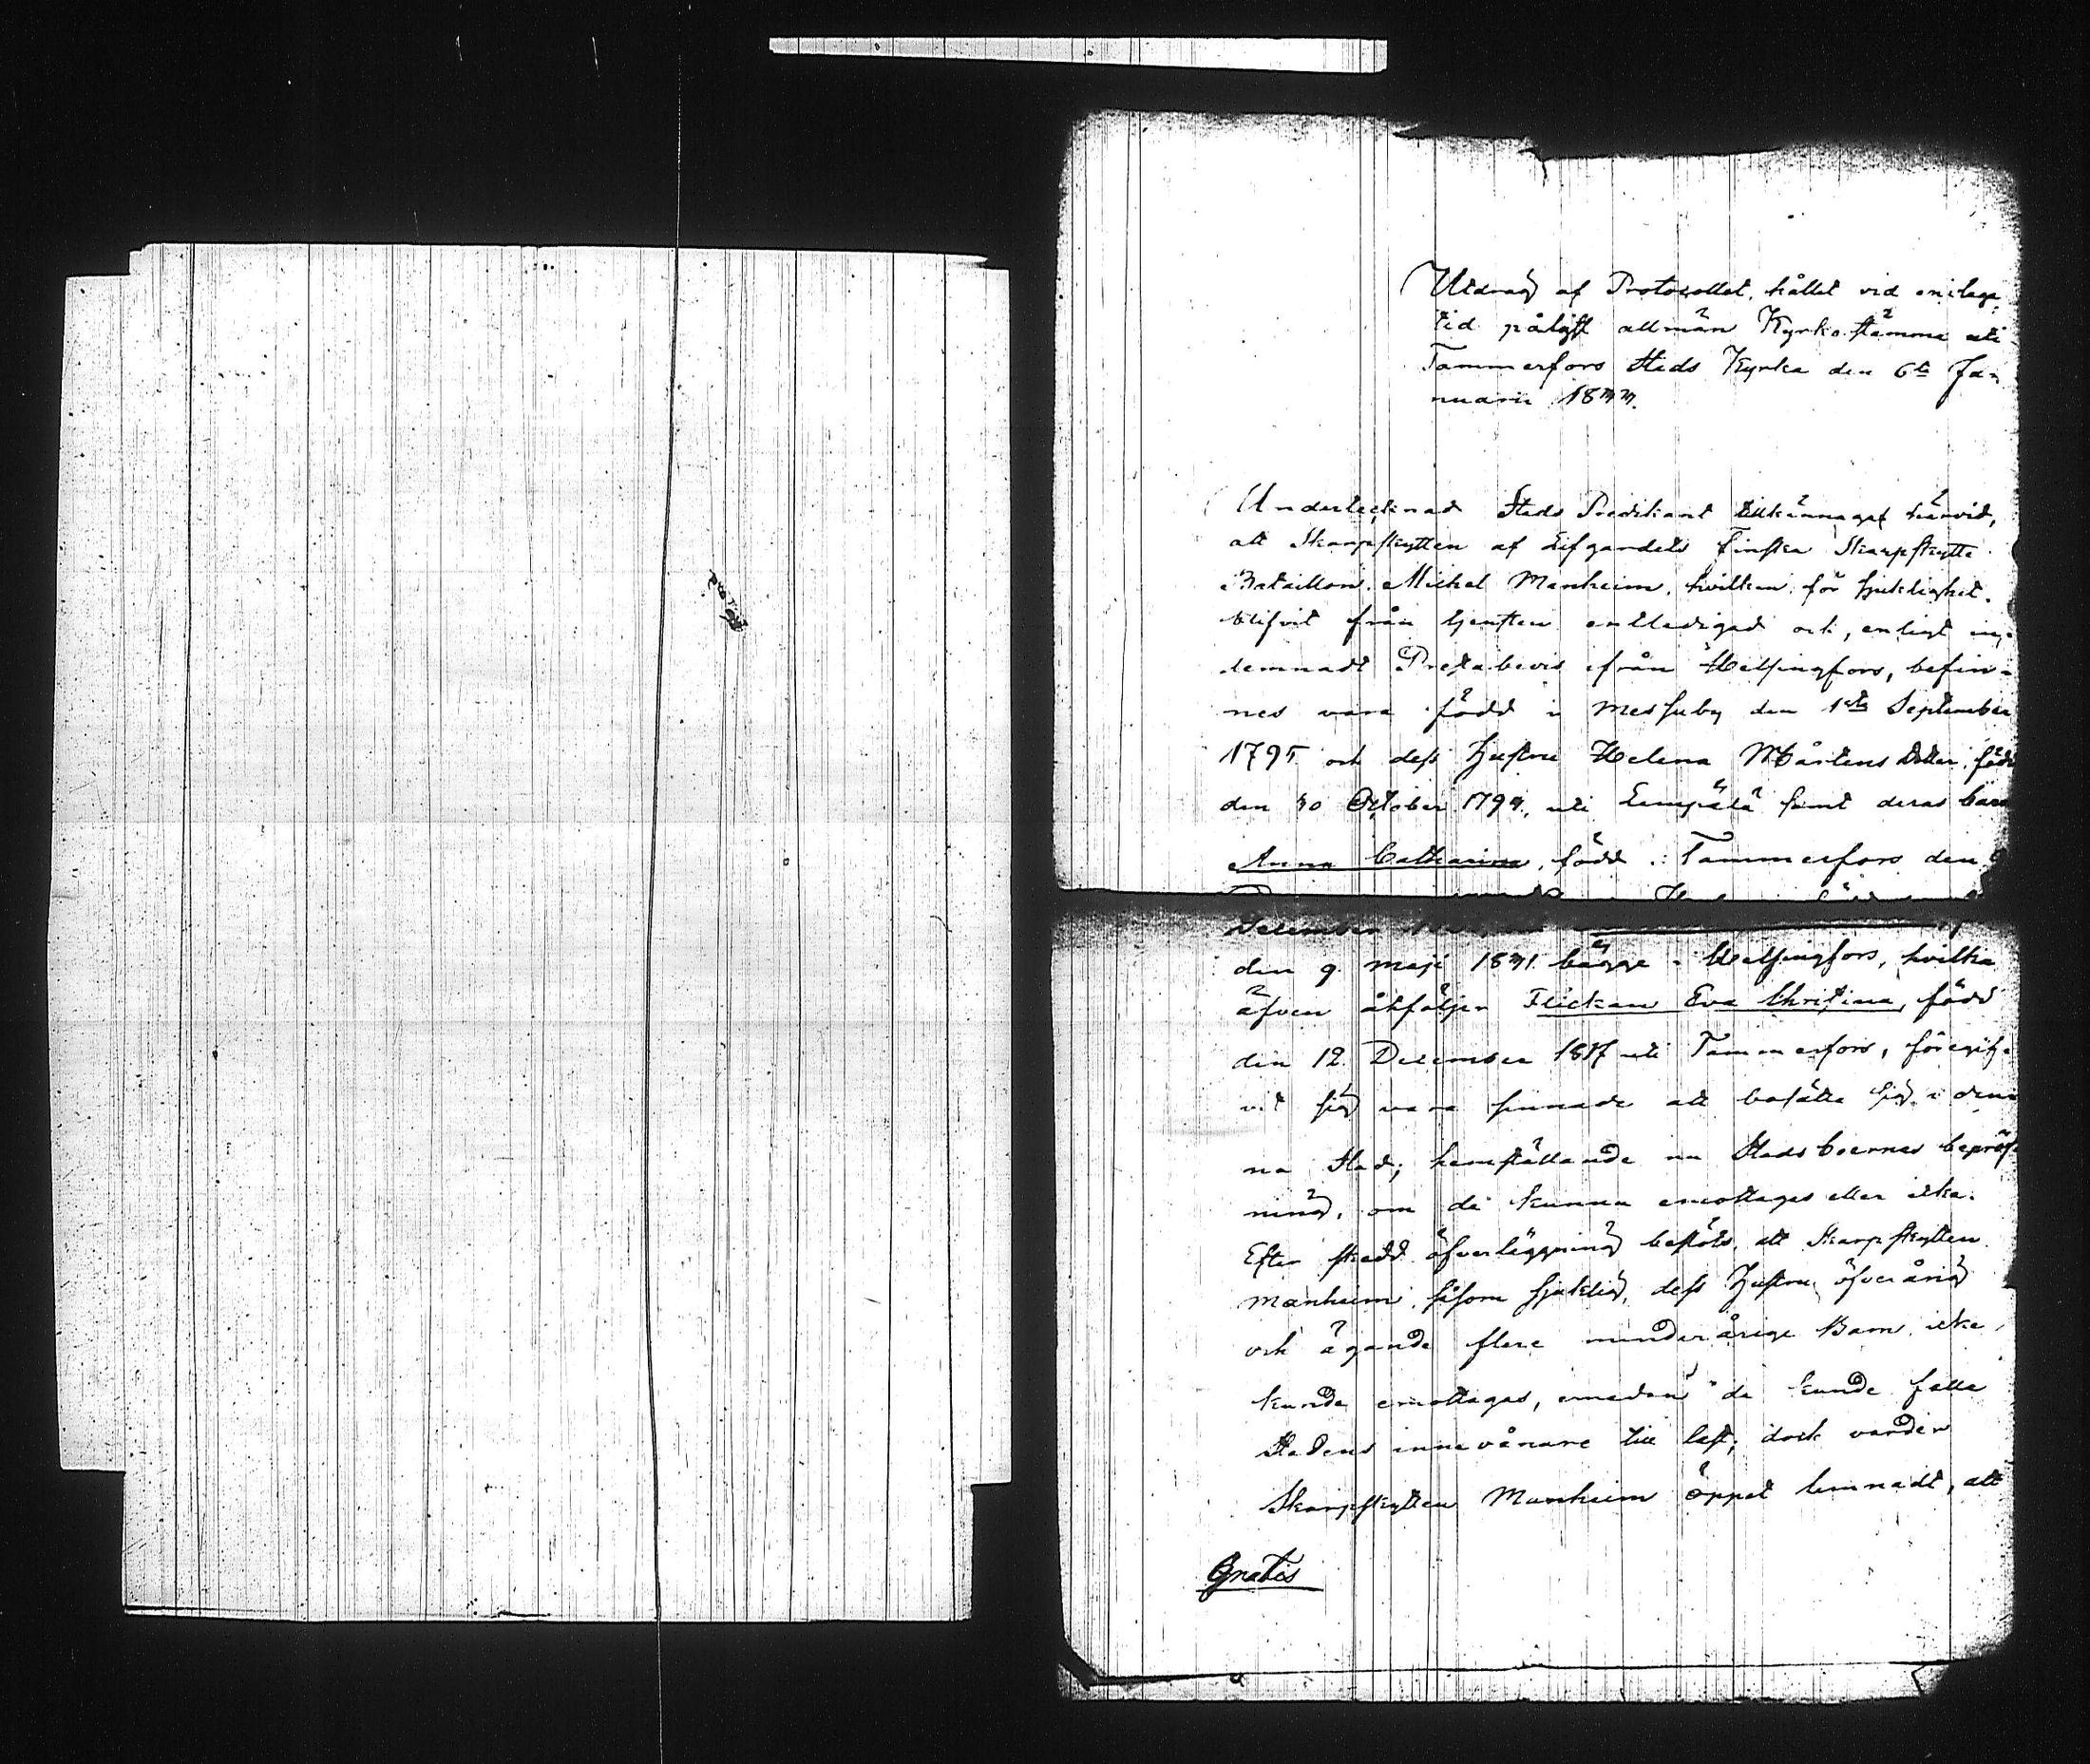 Utdrag af Protocollet, hållet vid
tid pålyst allmän Kyrkostämma uti
Tammerfors Stads Kyrka den 6te Ja-
nuarii 1833.
Undertecknad Stads Predikant tillkännagaf härvid,
att Skarpskytten af Lifgardets Finska Skarpskytte
Bataillon Michel Manheim, hvilken för sjuklighet
blifvit från tjensten entledigad och, enligt in-
lemnadt Prestabevis ifrån Helsingfors, befin-
nes vara född i Messuby den September
1795 och dess Hustru Helena Mårtens Dotter, född
den 30 October 1793, uti Lempälä samt deras barn
Anna Catharina, född i Tammerfors den
December
den 9. Maji 1831 bägge i Helsingfors, hvilka
äfven åtföljer Flickan Eva Christina, född
den 12. December 1817 uti Tammerfors, föregif-
vit sig vara sinnade att bosätta sig i den-
na Stad; hemställande nu Stadsboernes bepröf-
ning, om de kunna emottagas eller icke.
Efter skedd öfverläggning beslöts, att Skarpskytten
Manheim, såsom sjuklig, dess Hustru öfverårig
och ägande flere minderårige Barn, icke
kunde emottagas, emedan de kunde falla
Stadens innevånare till last; dock varder
Skarpskytten Manheim öppet lemnadt, att
Gratis